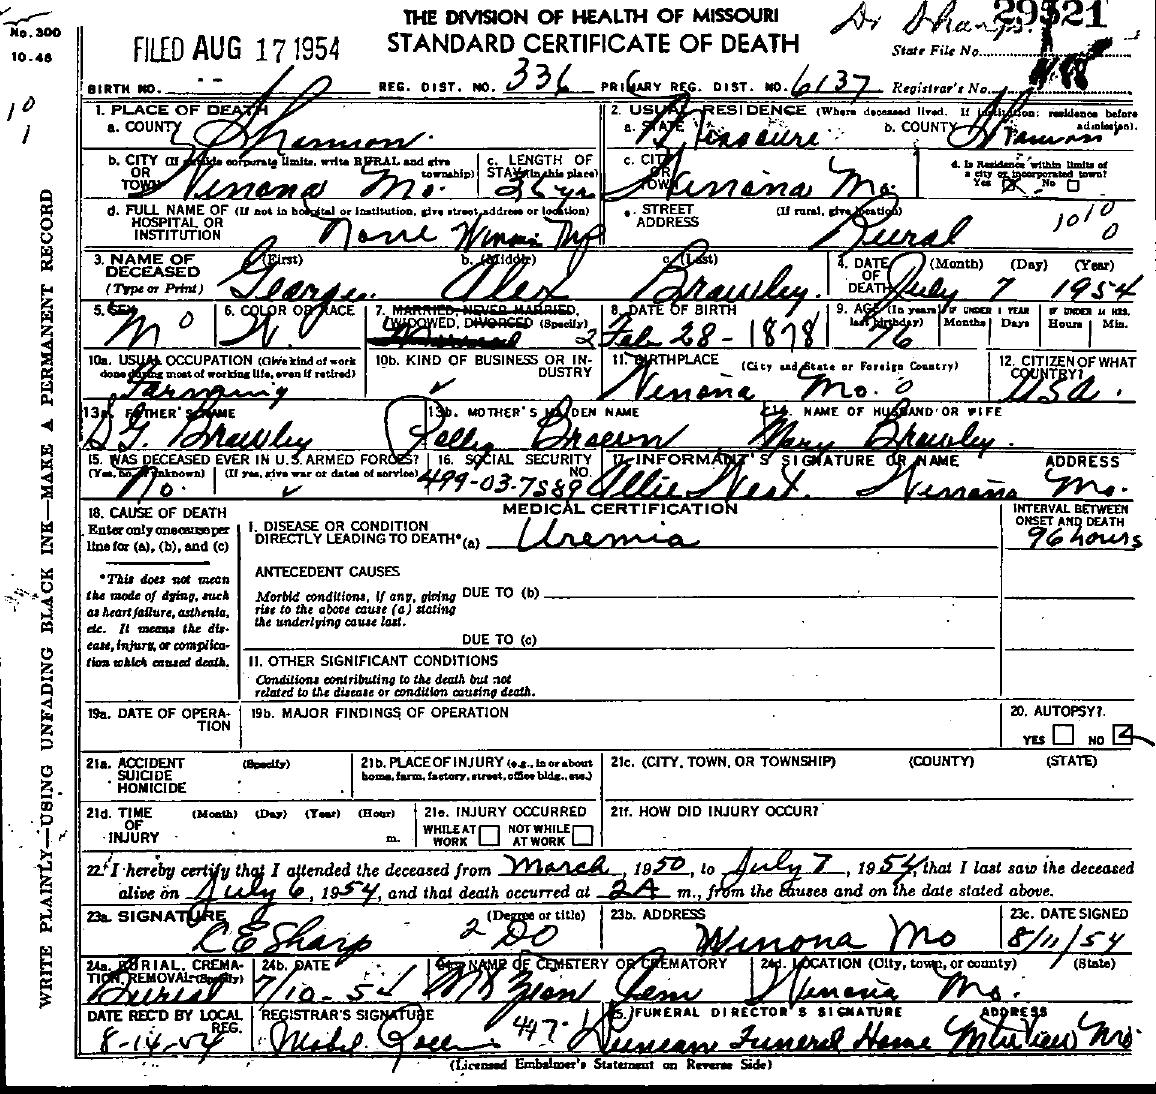 THE DIVISION OF HEALTH OF MISSOURI
STANDARD CERTIFICATE OF DEATH
No. 300
10-48
FILED AUG 17 1954
Dr Sharps
29521
State File No.
BIRTH NO. REG. DIST. NO. 336 PRIMARY REG. DIST. NO. 6137 Registrar's No.
10
1
1. PLACE OF DEATH
a. COUNTY Shannon
2. USUAL RESIDENCE (Where deceased lived. If institution: residence before admission).
a. STATE Missouri b. COUNTY Shannon
b. CITY (If outside corporate limits, write RURAL and give township)
OR
TOWN Winona Mo.
c. LENGTH OF
STAY (in this place)
36 yrs
c. CITY
OR
TOWN Winona Mo.
d. Is Residence within limits of
a city or incorporated town?
Yes No
d. FULL NAME OF (If not in hospital or institution, give street address or location)
HOSPITAL OR
INSTITUTION None Winona Twp
e. STREET (If rural, give location)
ADDRESS Rural
1010
0
3. NAME OF
DECEASED
(Type or Print)
a. (First) b. (Middle) c. (Last)
George Alex Brawley
4. DATE (Month) (Day) (Year)
OF
DEATH July 7 1954
5. SEX
M 0
6. COLOR OR RACE
W.
7. MARRIED, NEVER MARRIED,
WIDOWED, DIVORCED (Specify)
2
8. DATE OF BIRTH
Feb. 28-1878
9. AGE (In years last birthday)
76
IF UNDER 1 YEAR
Months Days
IF UNDER 24 HRS.
Hours Min.
10a. USUAL OCCUPATION (Give kind of work
done during most of working life, even if retired)
Farming
10b. KIND OF BUSINESS OR IN-
DUSTRY
11. BIRTHPLACE (City and State or Foreign Country)
Winona Mo. 0
12. CITIZEN OF WHAT
COUNTRY?
USA.
13a. FATHER'S NAME
S G. Brawley
13b. MOTHER'S MAIDEN NAME
Polly Brown
14. NAME OF HUSBAND OR WIFE
Mary Brawley.
15. WAS DECEASED EVER IN U.S. ARMED FORCES?
(Yes, no, or unknown) (If yes, give war or dates of service)
No.
16. SOCIAL SECURITY
NO.
499-03-7589
17. INFORMANT'S SIGNATURE OR NAME ADDRESS
Ollie West. Winona Mo.
18. CAUSE OF DEATH
Enter only one cause per
line for (a), (b), and (c)
*This does not mean
the mode of dying, such
as heart failure, asthenia,
etc. It means the dis-
ease, injury, or complica-
tion which caused death.
MEDICAL CERTIFICATION
I. DISEASE OR CONDITION
DIRECTLY LEADING TO DEATH*(a) Uremia
INTERVAL BETWEEN
ONSET AND DEATH
96 hours
ANTECEDENT CAUSES
Morbid conditions, if any, giving
rise to the above cause (a) stating
the underlying cause last.
DUE TO (b)
DUE TO (c)
II. OTHER SIGNIFICANT CONDITIONS
Conditions contributing to the death but not
related to the disease or condition causing death.
19a. DATE OF OPERA-
TION
19b. MAJOR FINDINGS OF OPERATION
20. AUTOPSY?
YES NO
21a. ACCIDENT (Specify)
SUICIDE
HOMICIDE
21b. PLACE OF INJURY (e.g., in or about
home, farm, factory, street, office bldg., etc.)
21c. (CITY, TOWN, OR TOWNSHIP) (COUNTY) (STATE)
21d. TIME (Month) (Day) (Year) (Hour)
OF
INJURY m.
21e. INJURY OCCURRED
WHILE AT NOT WHILE
WORK AT WORK
21f. HOW DID INJURY OCCUR?
22. I hereby certify that I attended the deceased from March, 1950, to July 7, 1954, that I last saw the deceased
alive on July 6, 1954, and that death occurred at 2A m., from the causes and on the date stated above.
23a. SIGNATURE (Degree or title)
C E Sharp 2 DO
23b. ADDRESS
Winona Mo
23c. DATE SIGNED
8/11/54
24a. BURIAL, CREMA-
TION, REMOVAL (Specify)
Burial
24b. DATE
7/10-54
24c. NAME OF CEMETERY OR CREMATORY
Mt Zion Cem
24d. LOCATION (City, town, or county) (State)
Winona Mo.
DATE REC'D BY LOCAL
REG.
8-14-54
REGISTRAR'S SIGNATURE
Mabel
447
25. FUNERAL DIRECTOR'S SIGNATURE ADDRESS
Duncan Funeral Home Mtn View Mo
(Licensed Embalmer's Statement on Reverse Side)
WRITE PLAINLY—USING UNFADING BLACK INK—MAKE A PERMANENT RECORD